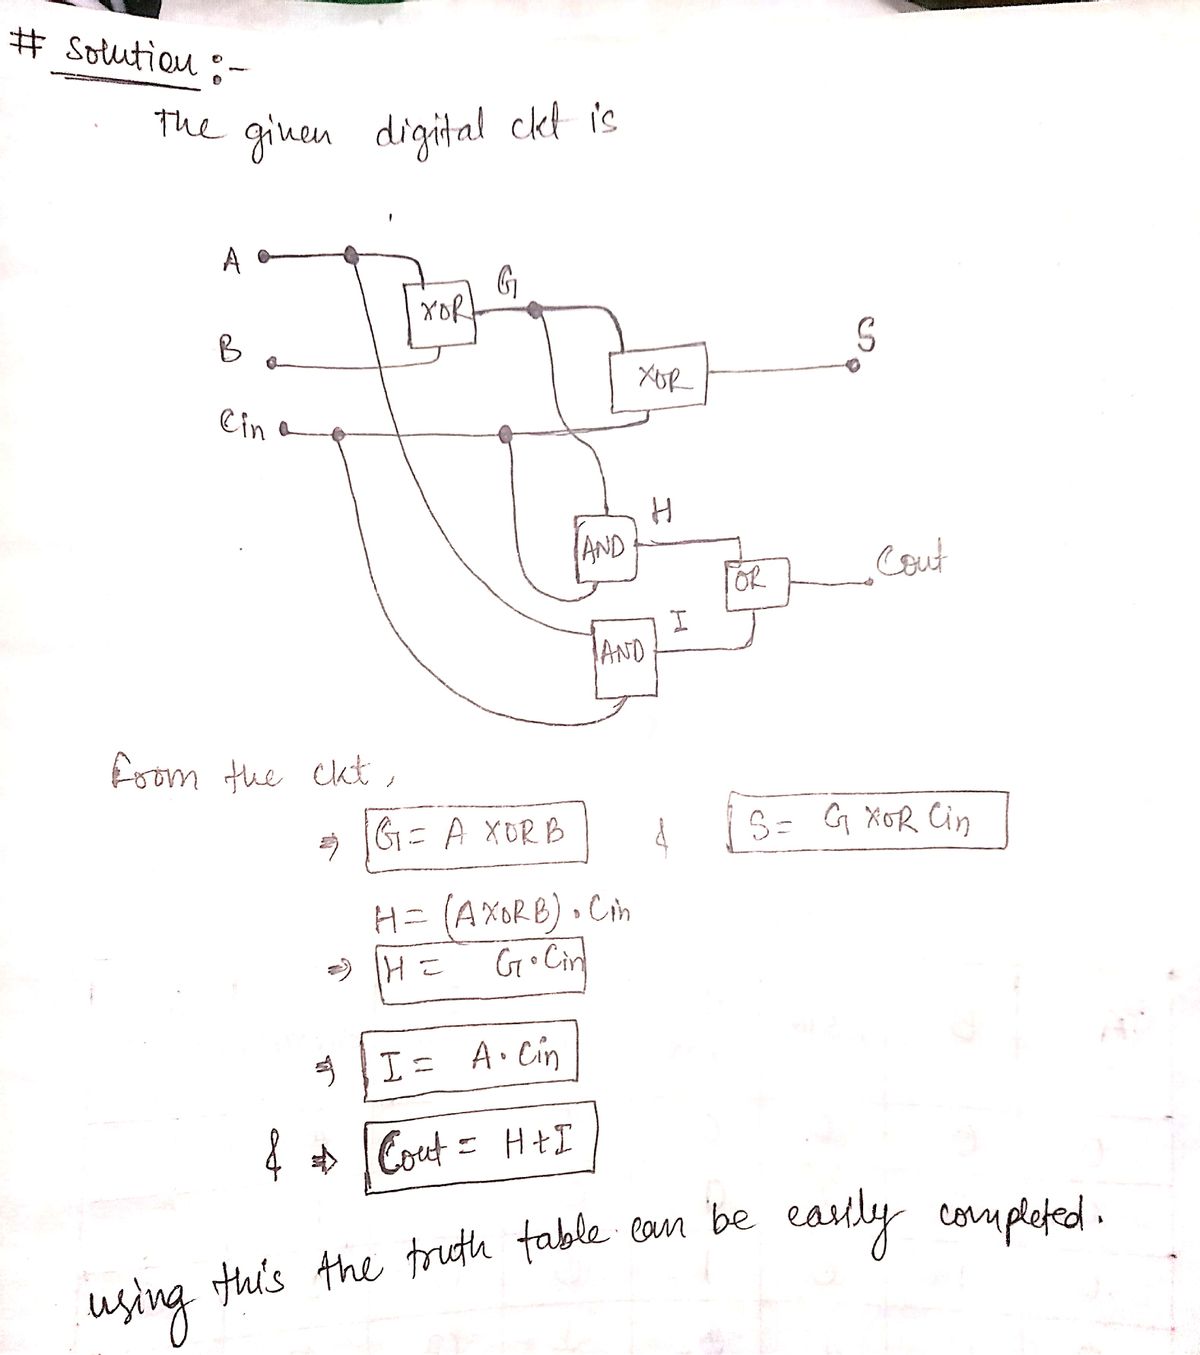 # Solution :-
The given digital ckt is
A
XOR
G
B
XOR
S
Cin
AND
H
OR
Cout
AND
I
from the ckt,
⇒ G = A XOR B & S = G XOR Cin
H = (A XOR B) . Cin
⇒ H = G . Cin
⇒ I = A . Cin
& ⇒ Cout = H + I
using this the truth table can be easily completed.